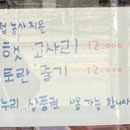 점 농사 지은
햇 고사리 12.000
토란 줄기 12.000
누리 상품권 사용 가능 합니다